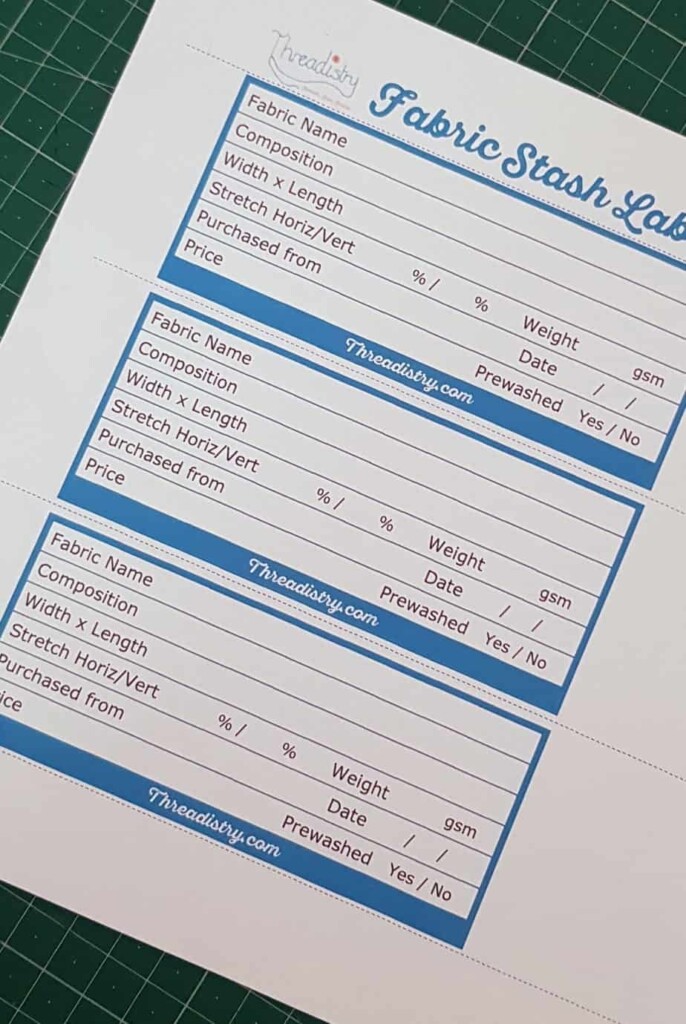 Threadistry
Fabric Stash Lab
Fabric Name
Composition
Width x Length
Stretch Horiz/Vert % / % Weight gsm
Purchased from Date / /
Price Prewashed Yes / No
Threadistry.com
Fabric Name
Composition
Width x Length
Stretch Horiz/Vert % / % Weight gsm
Purchased from Date / /
Price Prewashed Yes / No
Threadistry.com
Fabric Name
Composition
Width x Length
Stretch Horiz/Vert % / % Weight gsm
Purchased from Date / /
ice Prewashed Yes / No
Threadistry.com